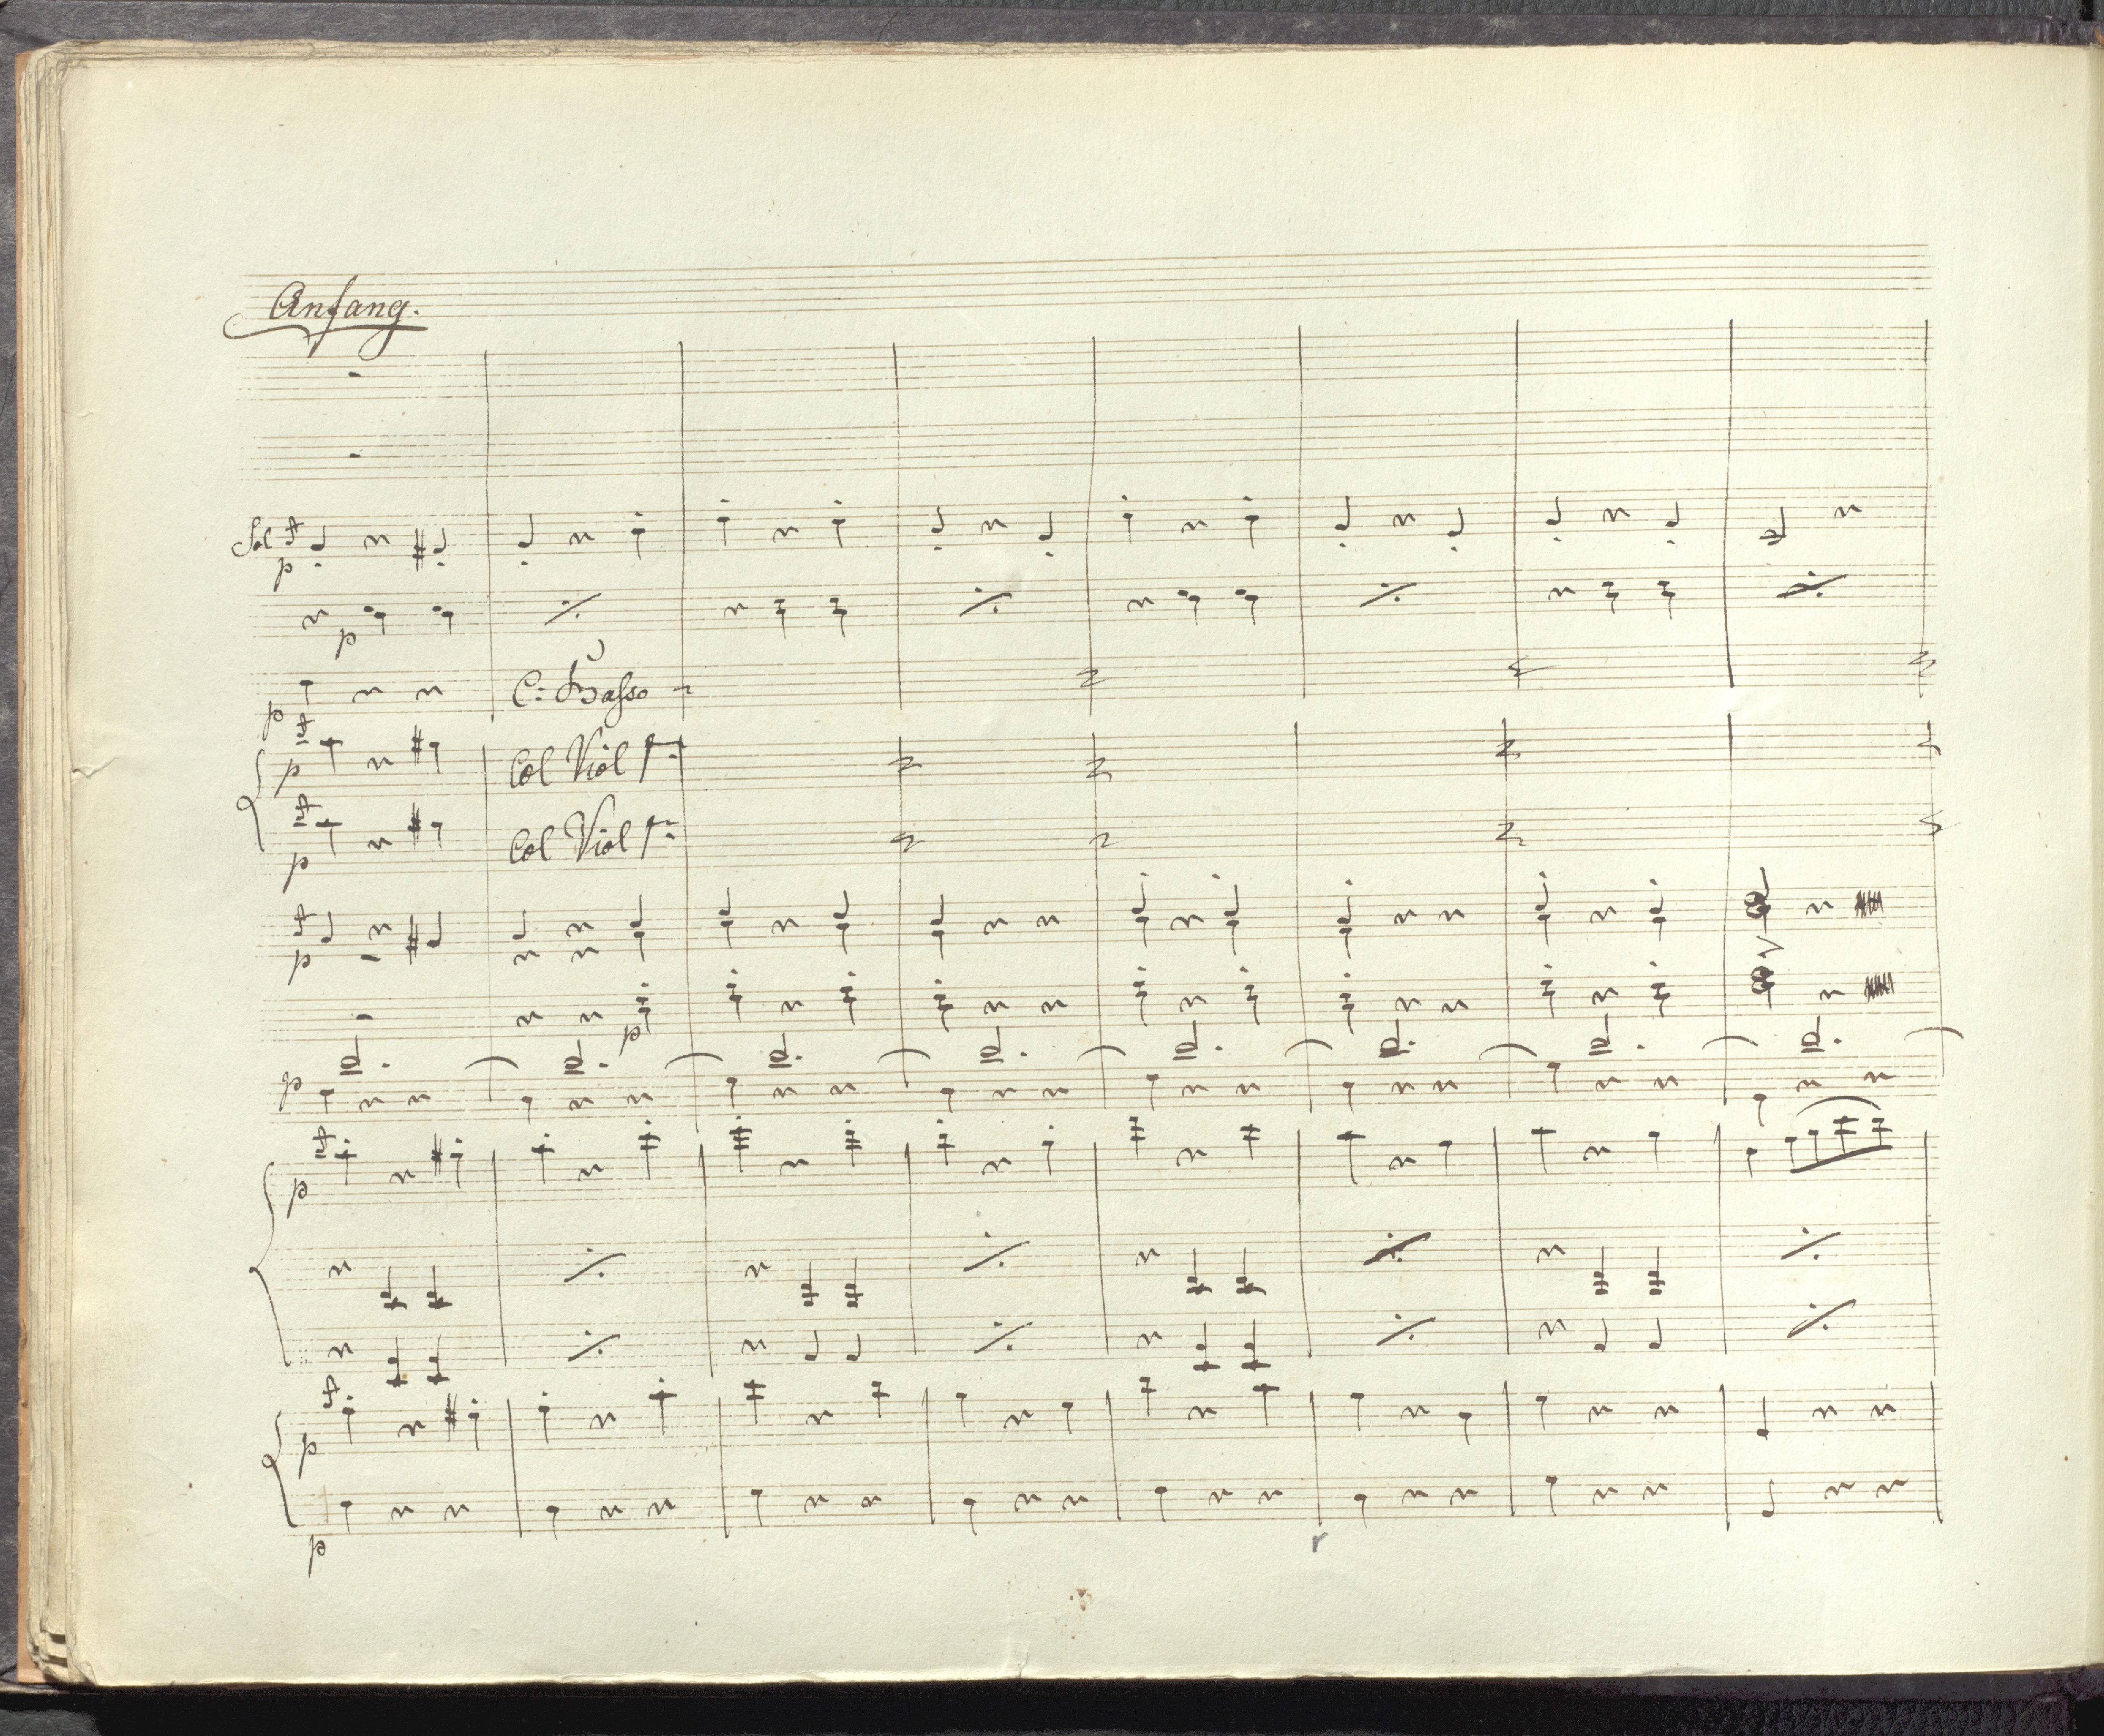 Anfang.
Sol
p
p
p
C: Basso
p
Col Viol
p
Col Viol
p
p
p
p
p
p